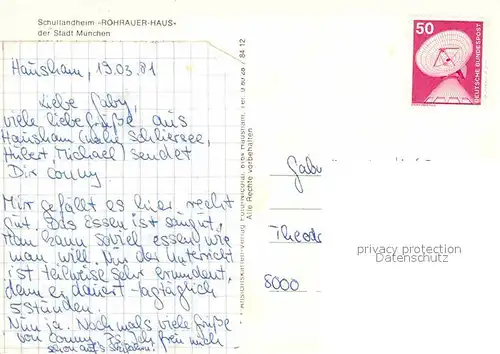 Schullandheim »ROHRAUER-HAUS«
der Stadt München
Hausham, 19.03.81
Liebe Gaby,
viele liebe Grüße aus
Hausham (nähe Schliersee,
Hubert, Michael) sendet
Dir Conny
Mir gefällt es hier recht
gut. Das Essen ist saugut,
man kann soviel essen wie
man will. Nur der Unterricht
ist teilweise sehr ermüdent,
denn er dauert tagtäglich
5 Stunden.
Nun ja. Nochmals viele Grüße
von Conny. freu mich
schon auf's
Ansichtskarten-Verlag Hausham, Tel. 84 12
Alle Rechte vorbehalten
50
DEUTSCHE BUNDESPOST
Gaby
Theodor
8000
privacy protection
Datenschutz